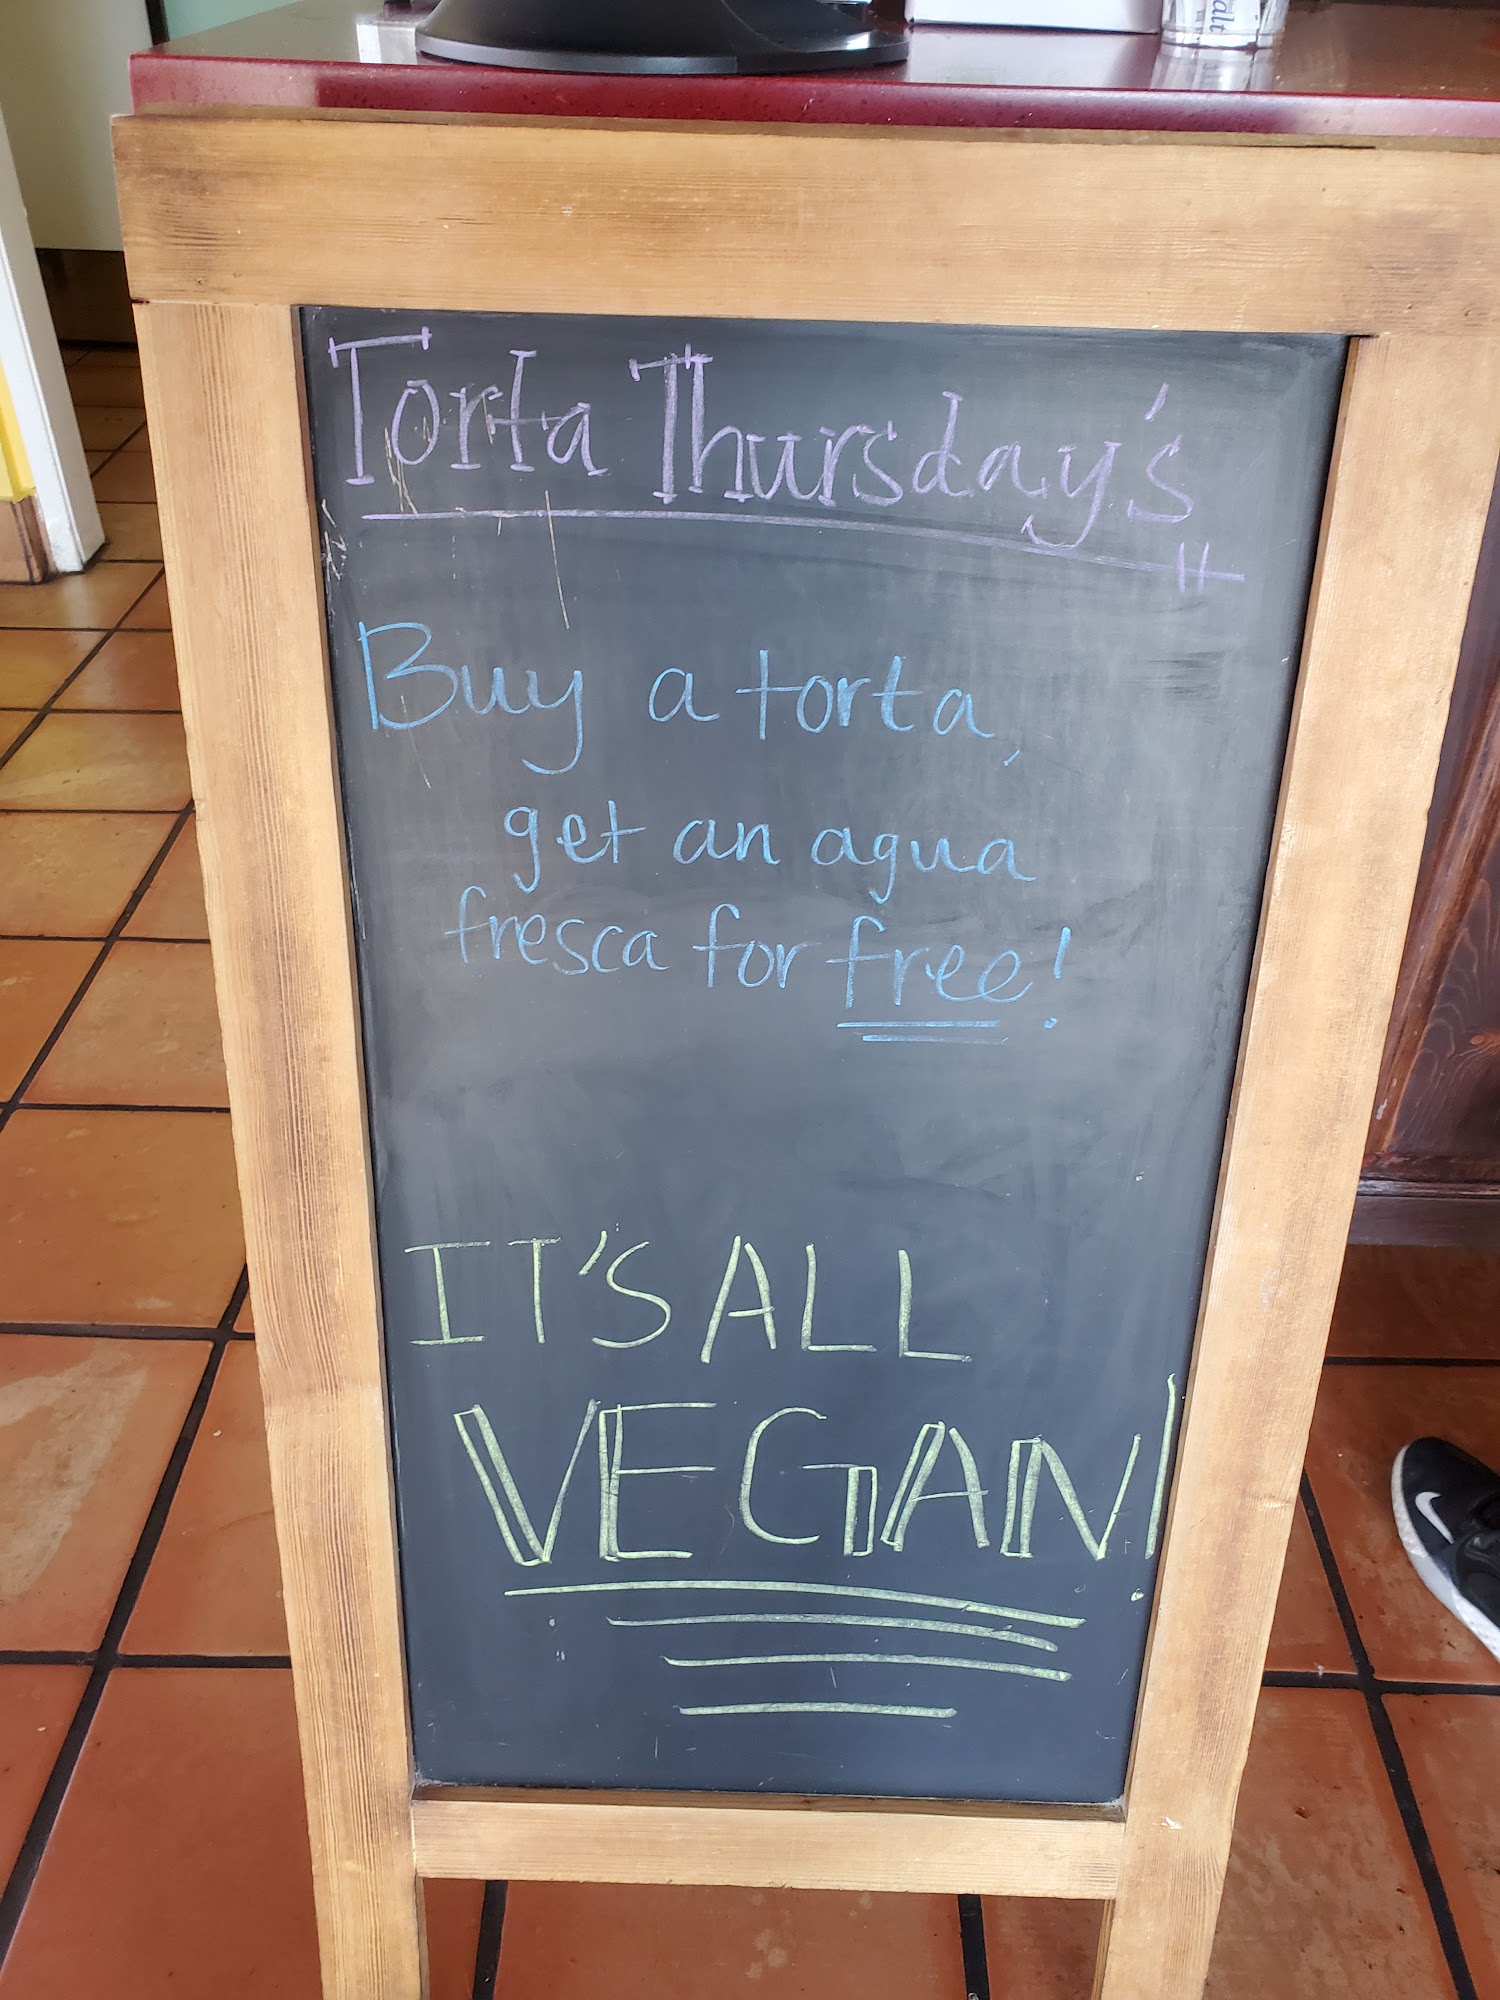 Torta Thursday's
Buy a torta,
get an agua
fresca for free!
IT'S ALL
VEGAN!